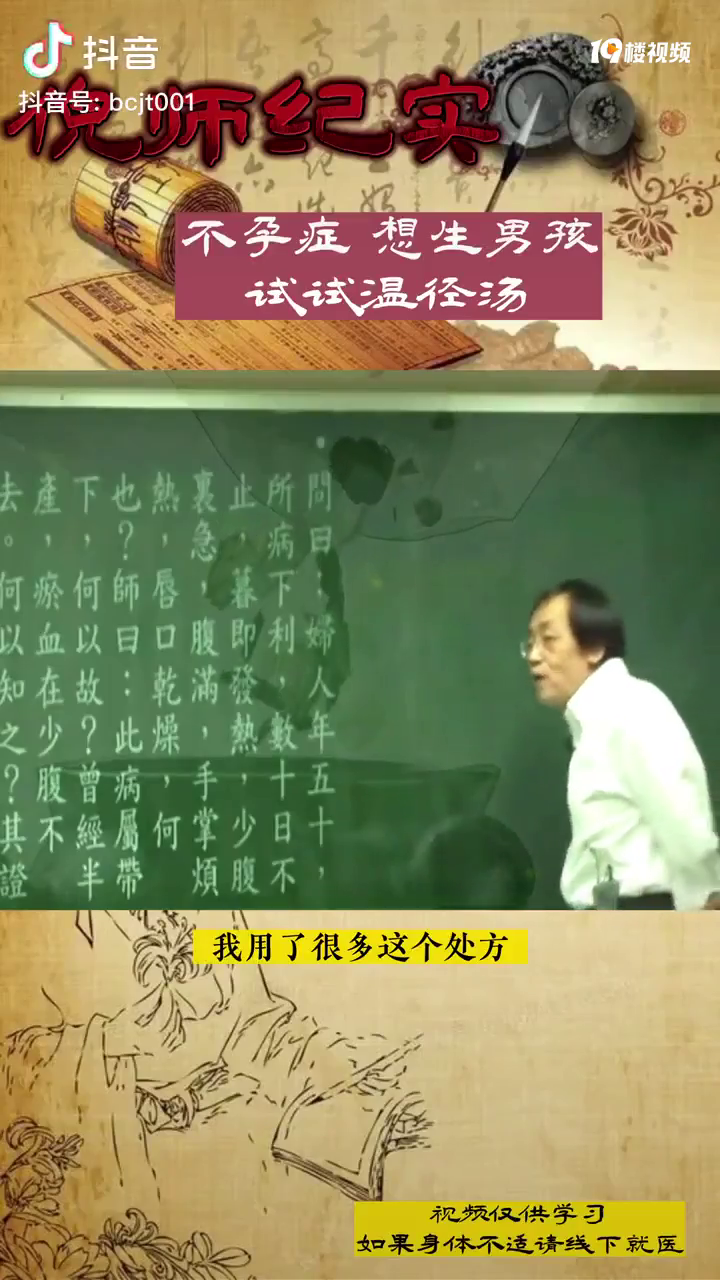 抖音
抖音号: bcjt001
19楼视频
倪师纪实
不孕症 想生男孩
试试温径汤
問曰：婦人年五十，
所病下利，數十日不
止，暮即發熱，少腹
裏急，腹滿，手掌煩
熱，唇口乾燥，何
也？師曰：此病屬帶
下，何以故？曾經半
產，瘀血在少腹不
去。何以知之？其證
我用了很多这个处方
视频仅供学习
如果身体不适请线下就医